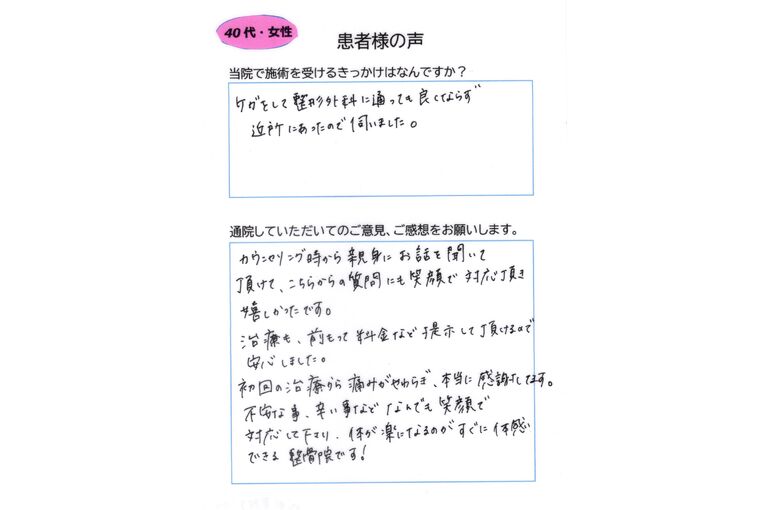 40代・女性
患者様の声
当院で施術を受けるきっかけはなんですか？
ケガをして整形外科に通っても良くならず
近所にあったので伺いました。
通院していただいてのご意見、ご感想をお願いします。
カウンセリング時から親身にお話を聞いて
頂けて、こちらからの質問にも笑顔で対応頂き
嬉しかったです。
治療も、前もって料金など提示して頂けるので
安心しました。
初回の治療から痛みがやわらぎ、本当に感謝してます。
不安な事、辛い事など なんでも笑顔で
対応して下さり、体が楽になるのがすぐに体感
できる整骨院です！